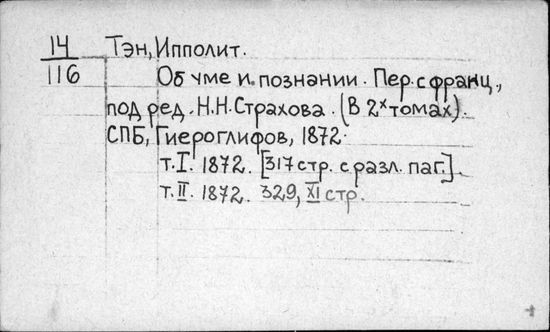 14 Тэн, Ипполит.
116 Об уме и познании. Пер. с франц.,
под ред. Н.Н.Страхова. (В 2х томах).
СПБ, Гиероглифов, 1872.
т.I. 1872. [317 стр. с разл. паг.].
т.II. 1872. 329, XI стр.